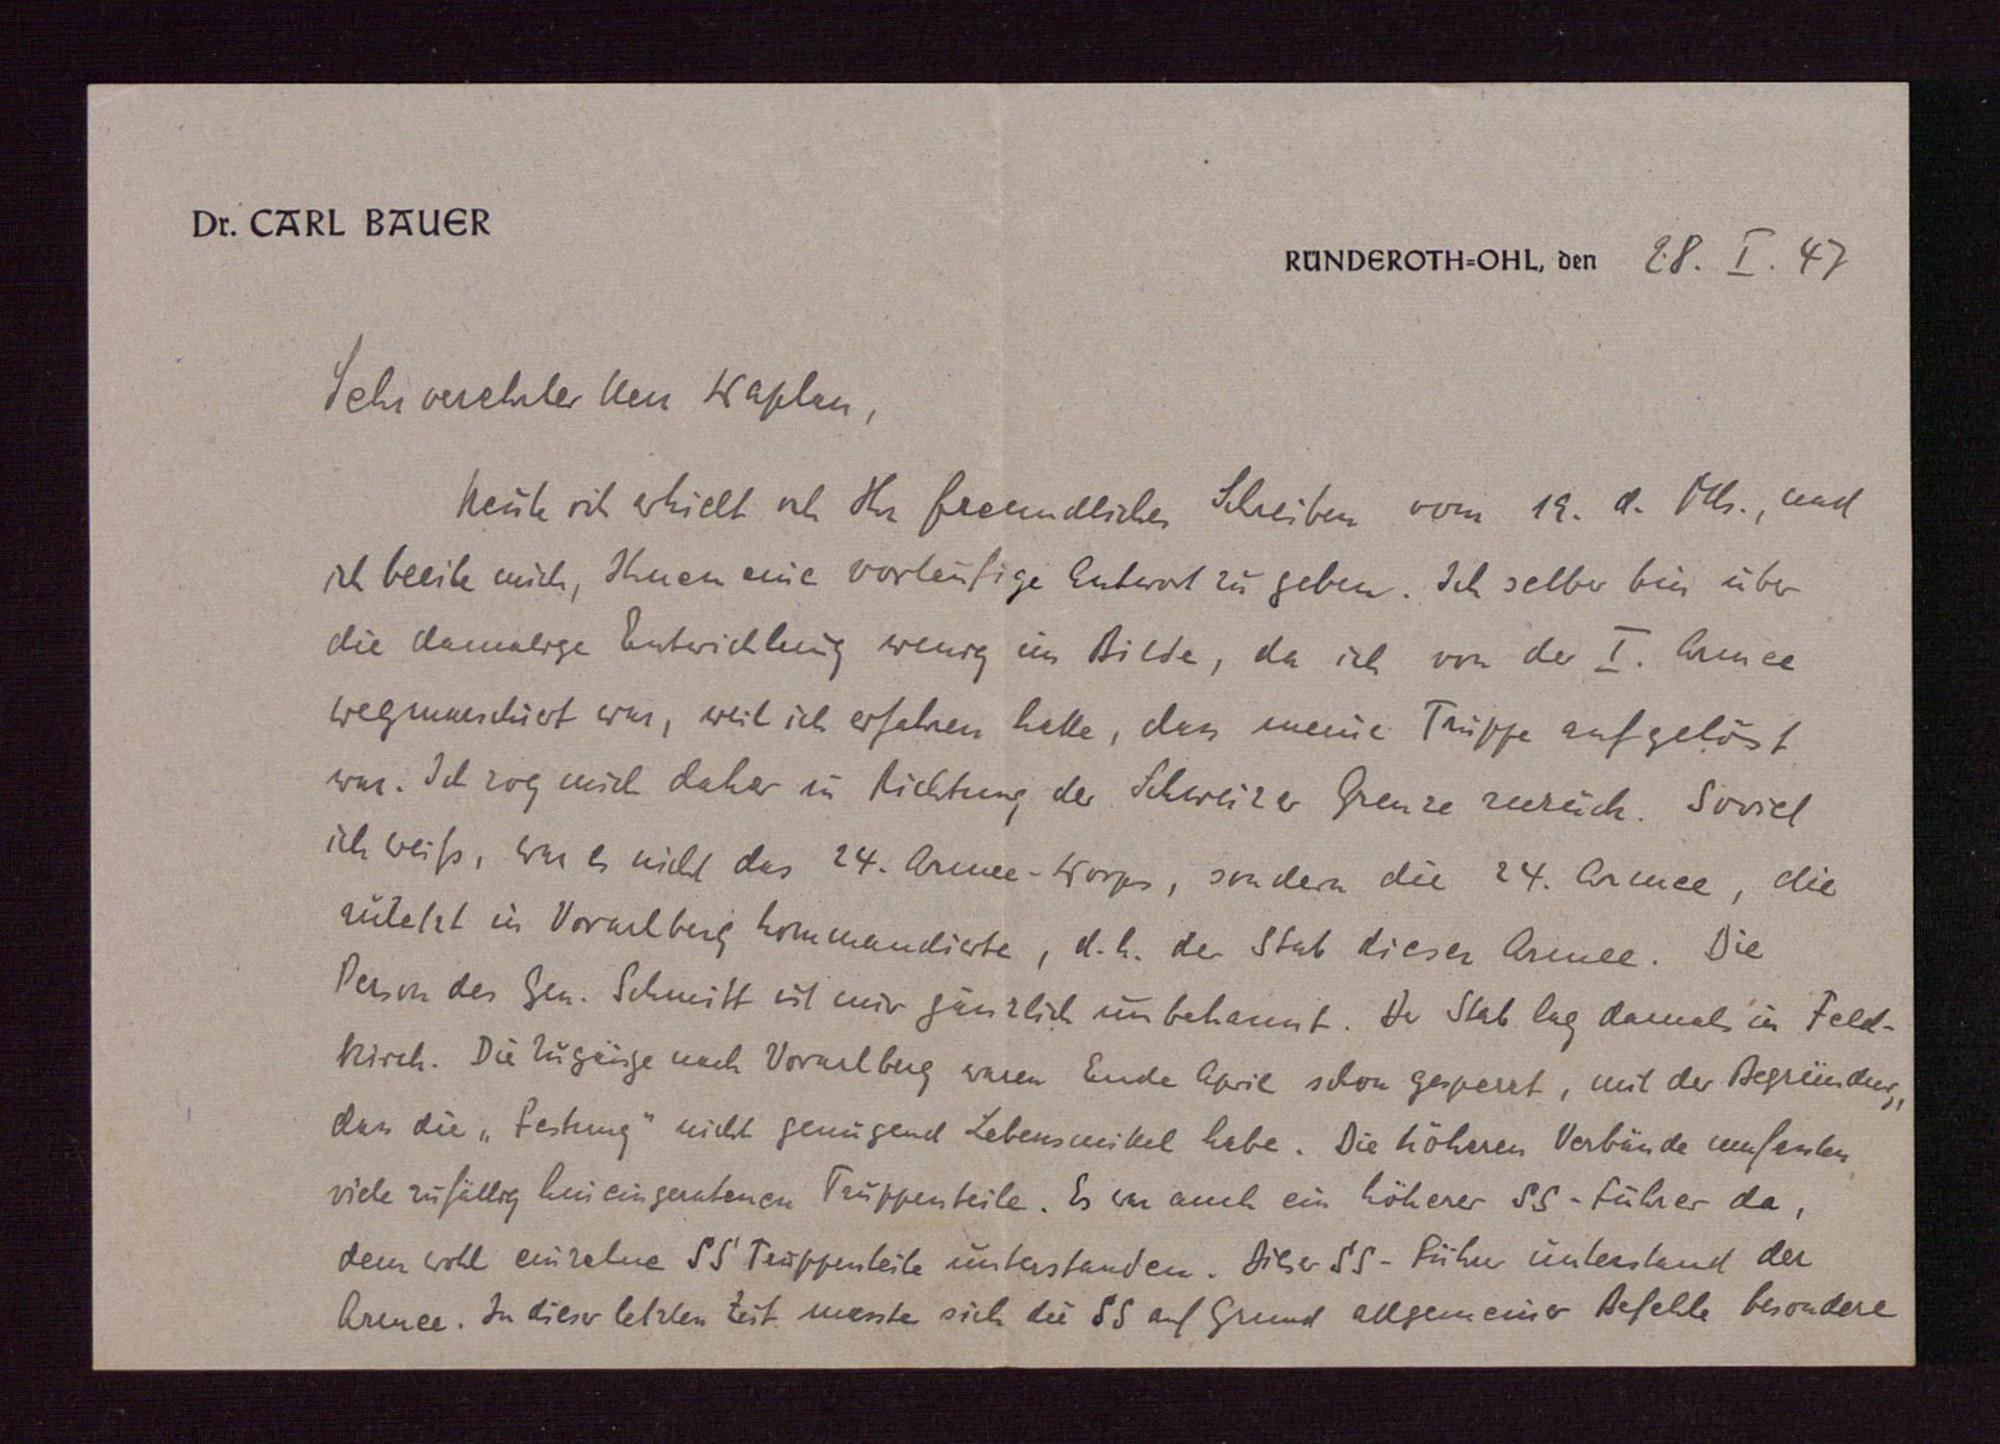 Dr. CARL BAUER
RÜNDEROTH=OHL, den 28. I. 47
Sehr verehrter Herr Kaplan,
Heute ich erhielt ich Ihr freundliches Schreiben vom 19. d. Mts., und
ich beeile mich, Ihnen eine vorläufige Antwort zu geben. Ich selber bin über
die damalige Entwicklung wenig im Bilde, da ich von der I. Armee
wegmarschiert war, weil ich erfahren hatte, dass meine Truppe aufgelöst
war. Ich zog mich daher in Richtung der Schweizer Grenze zurück. Soviel
ich weiß, war es nicht das 24. Armee-Korps, sondern die 24. Armee, die
zuletzt in Vorarlberg kommandierte, d.h. der Stab dieser Armee. Die
Person des Gen. Schmitt ist mir gänzlich unbekannt. Der Stab lag damals in Feld-
kirch. Die Zugänge nach Vorarlberg waren Ende April schon gesperrt, mit der Begründung,
dass die „Festung" nicht genügend Lebensmittel habe. Die höheren Verbände umfassten
viele zufällig hineingeratenen Truppenteile. Es war auch ein höherer SS-Führer da,
dem wohl einzelne SS Truppenteile unterstanden. Dieser SS-Führer unterstand der
Armee. In dieser letzten Zeit musste sich die SS auf Grund allgemeiner Befehle besondere